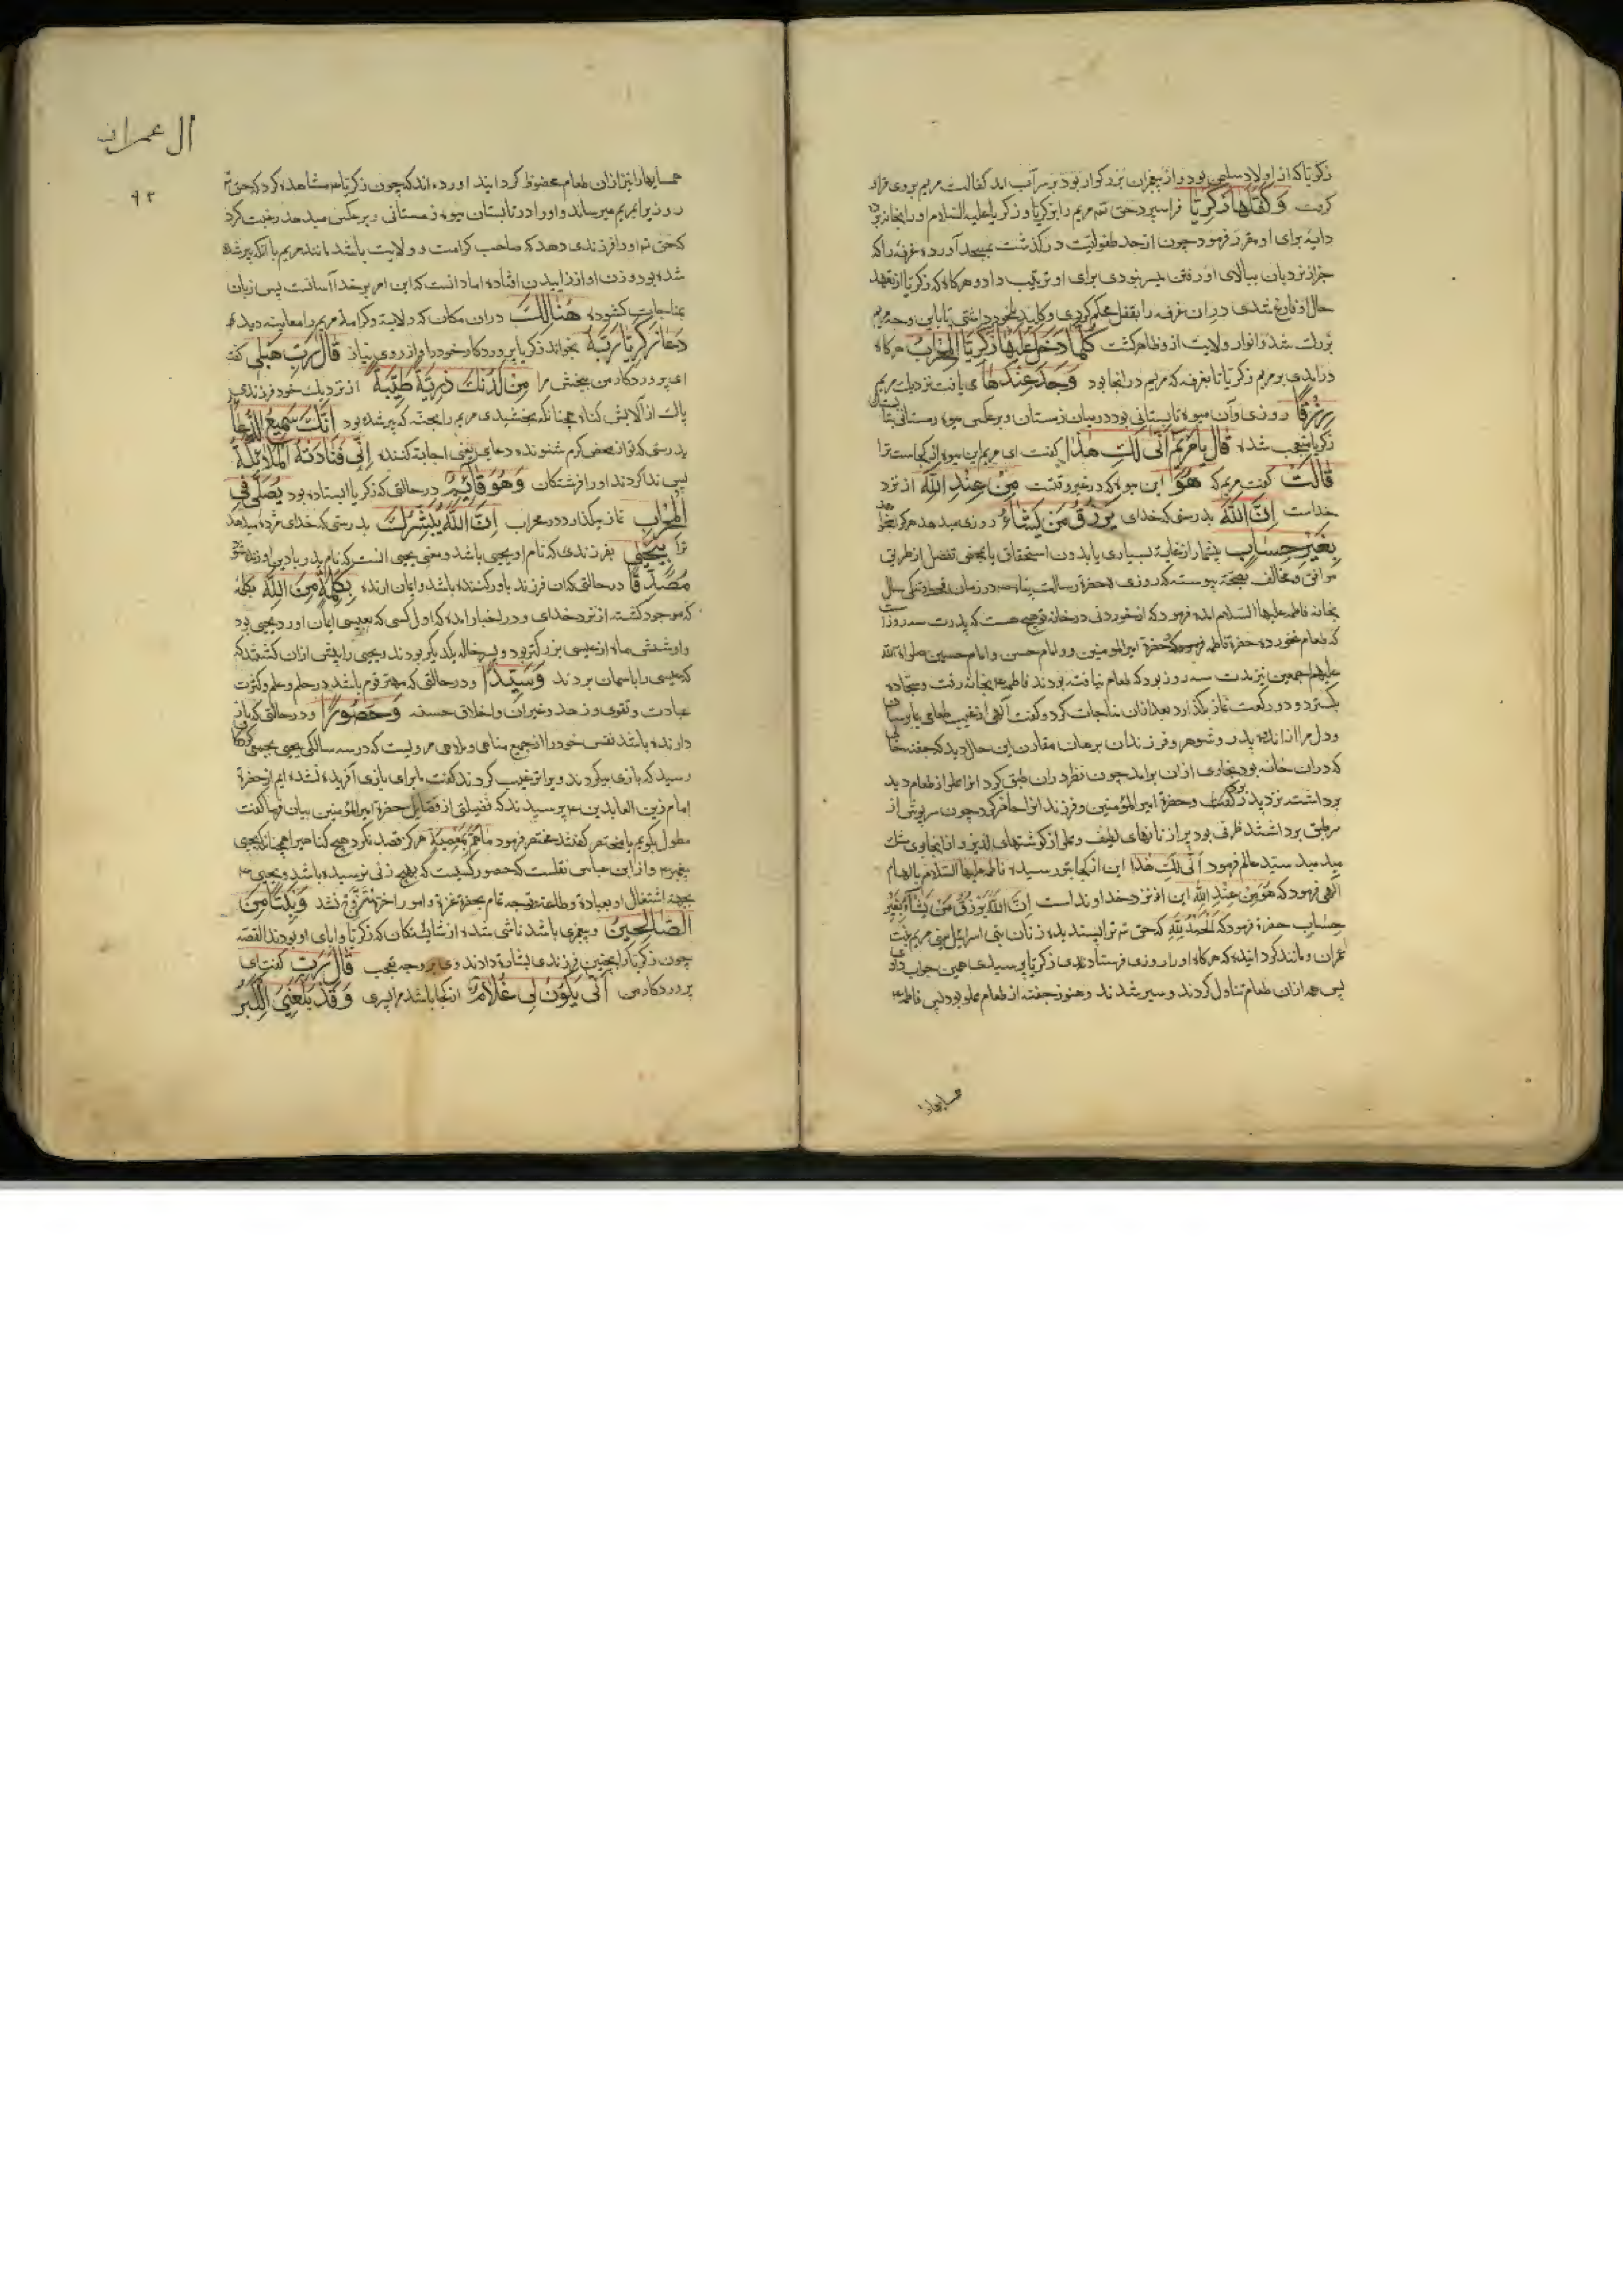 زکریا که از اولاد سلیمن بود و از پیغمبران بزرکوار بود بر سر آب امد کفالت مریم بر وی قرار
کرفت وَكَفَّلَهَا زَكَرِيَّا فرا سپرد حق تع مریم را بزکریا و زکریا علیه السلام او را بخانه برد
دایه برای او مقرر فرمود چون از حد طفولیت در کذشت بمسجد آورده غرفه را که
جز از نردبان ببالای او رفتن میسر نبودی برای او ترتیب داد و هرکاه که زکریا از تعهد
حال او فارغ شدی در ان غرفه را بقفل محکم کردی و کلید با خود داشتی تا باین وجه مریم
بزرک شد و انوار ولایت ازو ظاهر کشت كُلَّمَا دَخَلَ عَلَيْهَا زَكَرِيَّا الْمِحْرَابَ هرکاه
درامدی بر مریم زکریا تا بغرفه که مریم در انجا بود وَجَدَ عِنْدَهَا ی یافت نزدیک مریم
رِزْقًا روزی و آن میوه تابستانی بود در میان زمستان و بر عکس میوه زمستانی بتابستان
زکریا متعجب شده قَالَ يَا مَرْيَمُ أَنَّى لَكِ هَذَا کفت ای مریم این میوه از کجاست ترا
قَالَتْ کفت مریم که هُوَ این میوه که در غیر وقتست مِنْ عِنْدِ اللَّهِ از نزد
خداست إِنَّ اللَّهَ بدرستی که خدای يَرْزُقُ مَنْ يَشَاءُ روزی میدهد هرکرا میخواهد
بِغَيْرِ حِسَابٍ بیشمار از غایت بسیاری یا بدون استحقاق یا بمحض تفضل از طریق
موافق و مخالف بصحت پیوسته که روزی حضرة رسالت پناه ص در زمان قحط و تنکی سال
بخانه فاطمه علیها السلام امده فرمود که از خوردنی در خانه تو هیچ هست که پدرت سه روز است
که طعام نخورده حضرة فاطمه فرمود که حضرة امیر المومنین و امام حسن و امام حسین صلوات الله
علیهم اجمعین نیز مدت سه روز بود که طعام نیافته بودند فاطمه ع بخانه رفت و سجاده
بکسترد و دو رکعت نماز بکذارد بعد از ان مناجات کرد و کفت الهی از غیب طعامی بما برسان
و دل مرا از اندیشه پدر و شوهر و فرزندان برهان مقارن این حال دید که جفنه خالی
که در ان خانه بود بخاری از ان برامد چون نظر در ان طبق کرد انرا مملو از طعام دید
برداشته نزد پدر بزرکوار و حضرة امیر المؤمنین و فرزندان حاضر کرد چون سرپوش از
سر طبق برداشتند ظرفی بود پر از نانهای لطیف و مملو از کوشتهای لذیذ و از انجا بوی مشک
میدمید سید عالم فرمود أَنَّى لَكِ هَذَا این از کجا بتو رسیده فاطمه علیها السلام بالهام
الهی فرمود که هُوَ مِنْ عِنْدِ اللَّهِ این از نزد خداوند است إِنَّ اللَّهَ يَرْزُقُ مَنْ يَشَاءُ بِغَيْرِ
حِسَابٍ حضرة فرمود که اَلْحَمْدُ لِلَّهِ که حق تع ترا بسیده زنان بنی اسرائیل یعنی مریم بنت
عمران مانند کردانیده که هرکاه او را روزی فرستادندی زکریا پرسیدی همین جواب دادی
پس همه از ان طعام تناول کردند و سیر شدند و هنوز جفنه از طعام مملو بود پس فاطمه ع
همسایهارا
ال عمران
۹۳
همسایهارا نیز از ان طعام محظوظ کردانید اورده اند که چون زکریا ع مشاهده کرد که حق تع
روزی را بمریم میرساند و او را در تابستان میوه زمستانی و بر عکس میدهد رغبت کرد
که حق تع او را فرزندی دهد که صاحب کرامت و ولایت باشد مانند مریم با انکه پیر شده
شده بود و زن او از زاییدن افتاده اما دانست که این امر بر خدا آسانست پس زبان
بمناجات کشوده هُنَالِكَ در ان مکان که ولایة و کرامة مریم را معاینه دید
دَعَا زَكَرِيَّا رَبَّهُ بخواند زکریا پروردکار خود را و از روی نیاز قَالَ رَبِّ هَبْ لِي کفت
ای پروردکار من ببخش مرا مِنْ لَدُنْكَ ذُرِّيَّةً طَيِّبَةً از نزدیک خود فرزندی
پاک از آلایش کناه همچنانکه بخشیدی مریم را بحنه که پیر شده بود إِنَّكَ سَمِيعُ الدُّعَاءِ
بدرستی که تو از محض کرم شنونده دعایی یعنی اجابة کننده إِنِّي فَنَادَتْهُ الْمَلَائِكَةُ
پس ندا کردند او را فرشتکان وَهُوَ قَائِمٌ در حالتی که زکریا ایستاده بود يُصَلِّي فِي
الْمِحْرَابِ نماز میکذارد در محراب إِنَّ اللَّهَ يُبَشِّرُكَ بدرستی که خدای مژده میدهد
ترا بِيَحْيَى بفرزندی که نام او یحیی باشد و معنی یحیی انست که نام پدر یا دین او زنده شود
مُصَدِّقًا در حالتی که ان فرزند باور کننده باشد و ایمان ارنده بِكَلِمَةٍ مِنَ اللَّهِ بکلمه
که موجود کشته از نزد خدای و در اخبار امده که اول کسی که بعیسی ایمان اورد یحیی بود
و او شش ماه از عیسی بزرکتر بود و پسر خاله یکدیکر بودند و یحیی را پیش از ان کشتند که
که عیسی را باسمان بردند وَسَيِّدًا و در حالتی که مهتر قوم باشد در حلم و علم و کثرت
عبادت و تقوی و زهد و خیرات و اخلاق حسنه وَحَصُورًا و در حالتی که باز
دارنده باشد نفس خود را از جمیع مناهی و ملاهی مرویست که در سه سالکی یحیی بجمعی کودکان
رسید که بازی میکردند ویرا ترغیب کردند کفت ما برای بازی آفریده نشده ایم از حضرة
امام زین العابدین ع پرسیدند که فضیلتی از فضایل حضرة امیر المؤمنین بیان فرما کفت
مطول بکویم یا مختصر کفتند مختصر فرمود مَا هَمَّ بِمَعْصِيَةٍ هرکز قصد نکرد هیچ کناهیرا همچنانکه یحیی
پیغمبر ع و از ابن عباس نقلست که حصور کسیست که بهیچ زنی نرسیده باشد و یحیی ع
بجهة اشتغال او بعبادة و طاعة و توجه تمام بحضرة عزة و امور اخرة متزوج نشد وَنَبِيًّا مِنَ
الصَّالِحِينَ و پیغمبری باشد ناشی شده از شایستکان که زکریا و ابای او بودند القصه
چون زکریا را بچنین فرزندی بشارة دادند وی بر وجه تعجب قَالَ رَبِّ کفت ای
پروردکار من أَنَّى يَكُونُ لِي غُلَامٌ از کجا باشد مرا پسری وَقَدْ بَلَغَنِيَ الْكِبَرُ